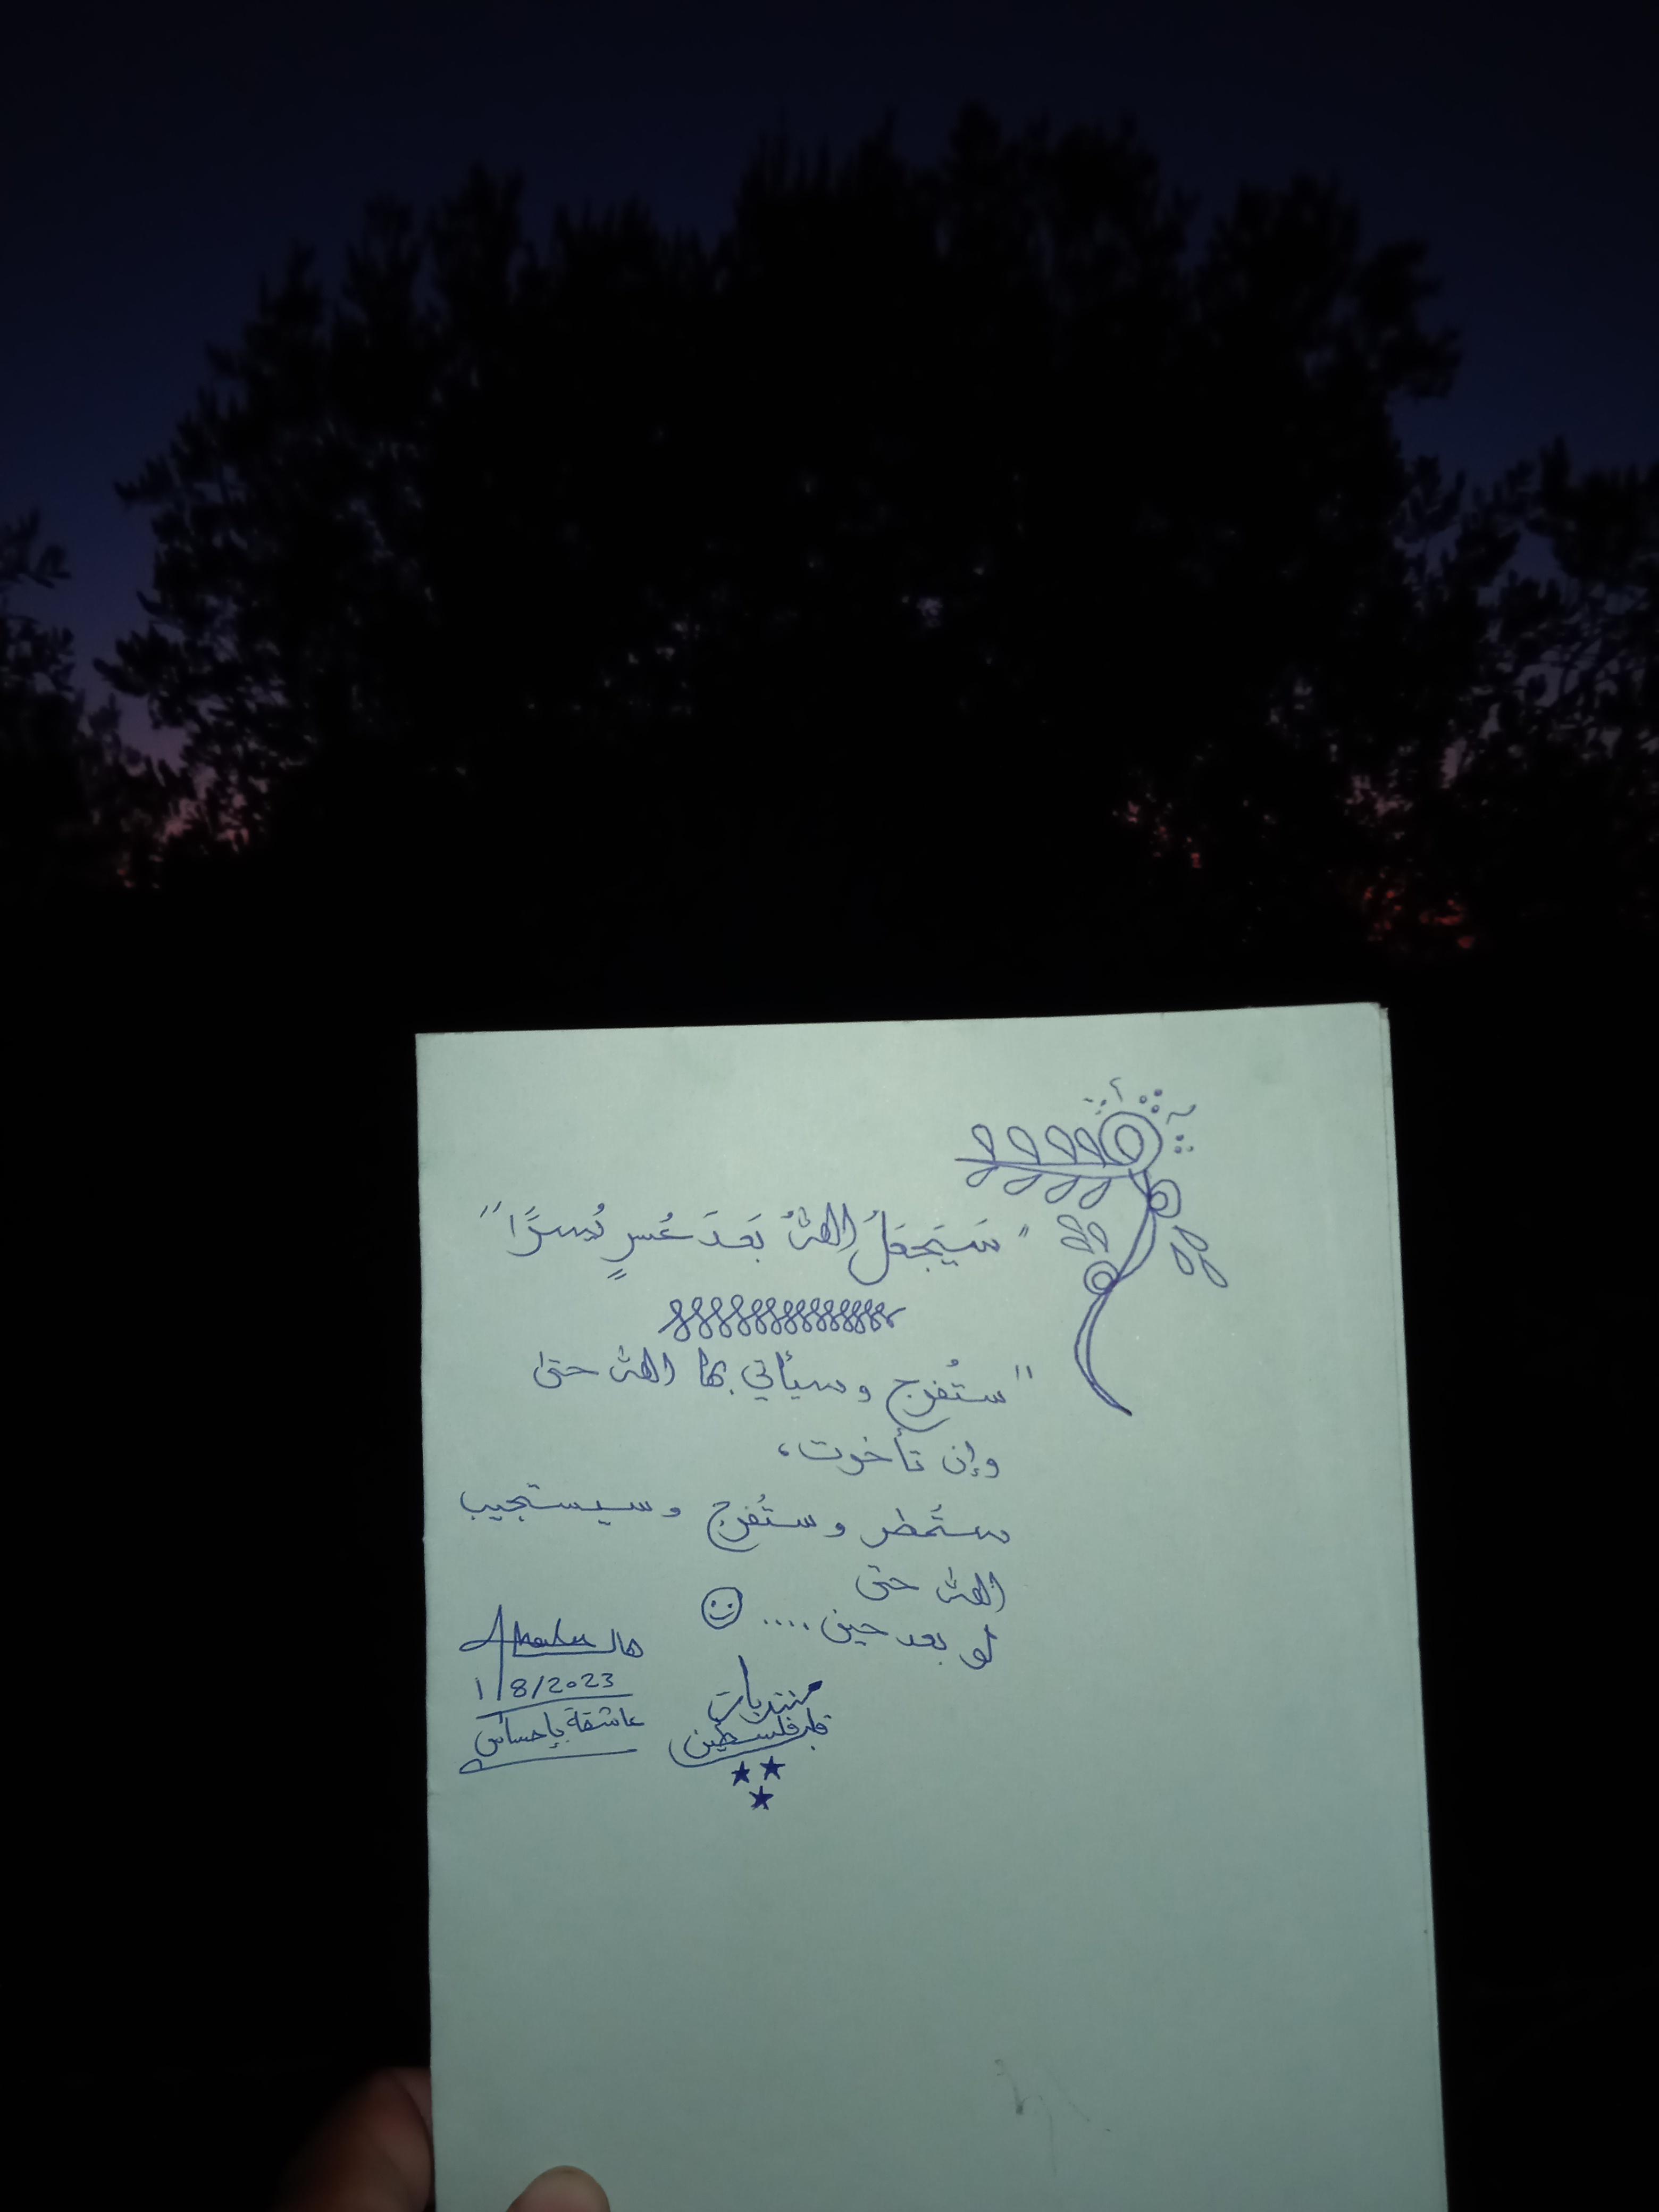 "سَيَجعَلُ اللهُ بَعدَ عُسرٍ يُسرًا"
"ستُفرج وسيأتي بها الله حتى
وإن تأخرت،
ستُمطر وستُفرج وسيستجيب
الله حتى
لو بعد حين....
1/8/2023
عاشقة بإحساس
منتديات
قلب فلسطين